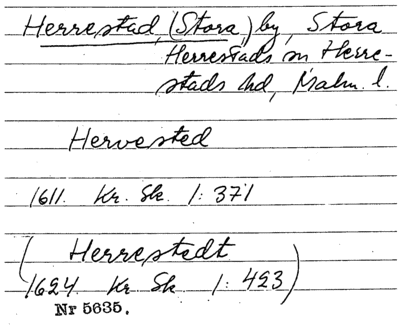 Herrestad, (Stora) by, Stora
Herrestads sn Herre-
stads hd, Malm. l.
Hervested
1611. Kr. Sk. 1: 371
(Herrestedt
1624 Kr Sk 1: 423)
Nr 5635.